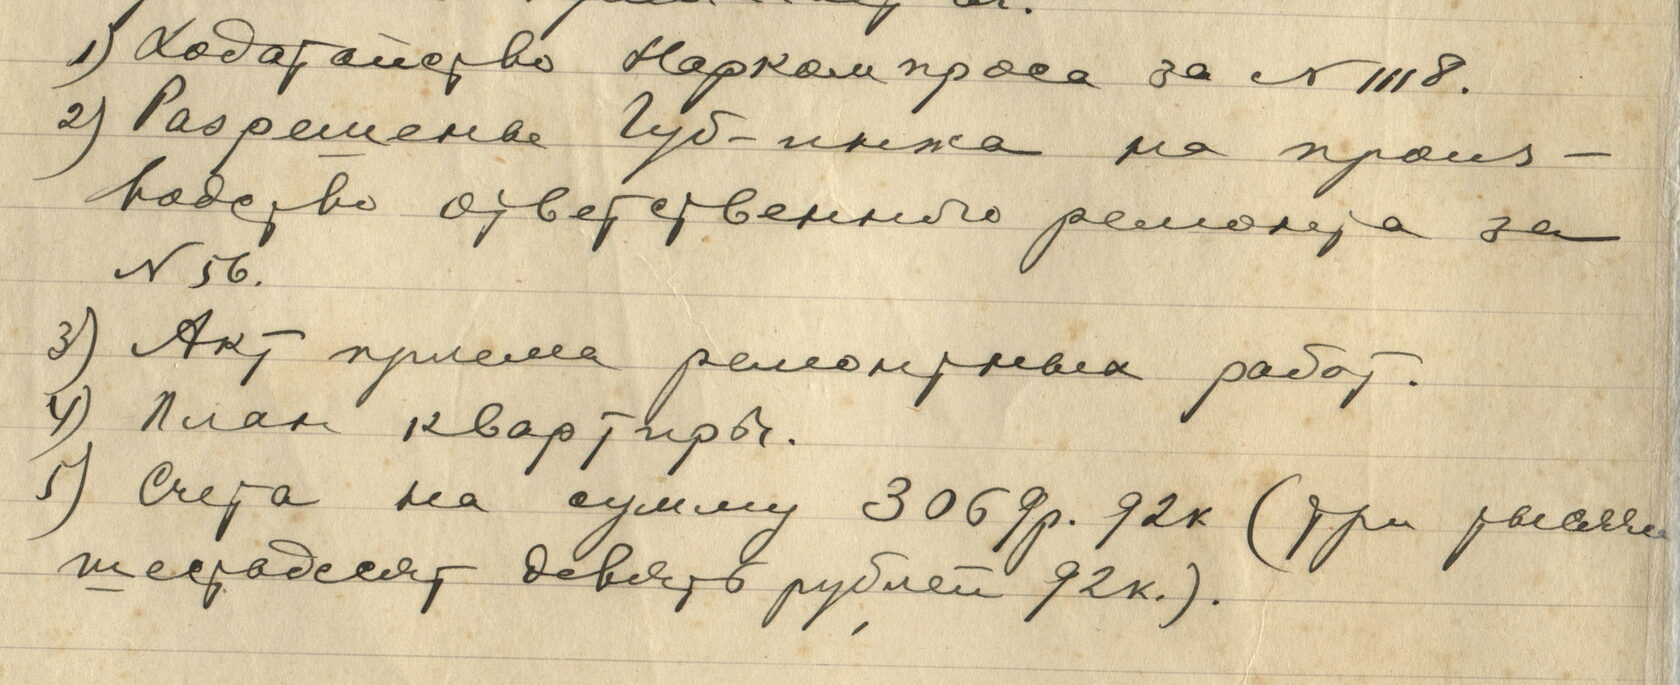 1) Ходатайство Наркомпроса за N 1118.
2) Разрешенье Губ-инжа на произ-
водство ответственного ремонта за
N 56.
3) Акт приема ремонтных работ.
4) План квартиры.
5) Счета на сумму 3069р. 92к (три тысячи
шестьдесят девять рублей 92к.).